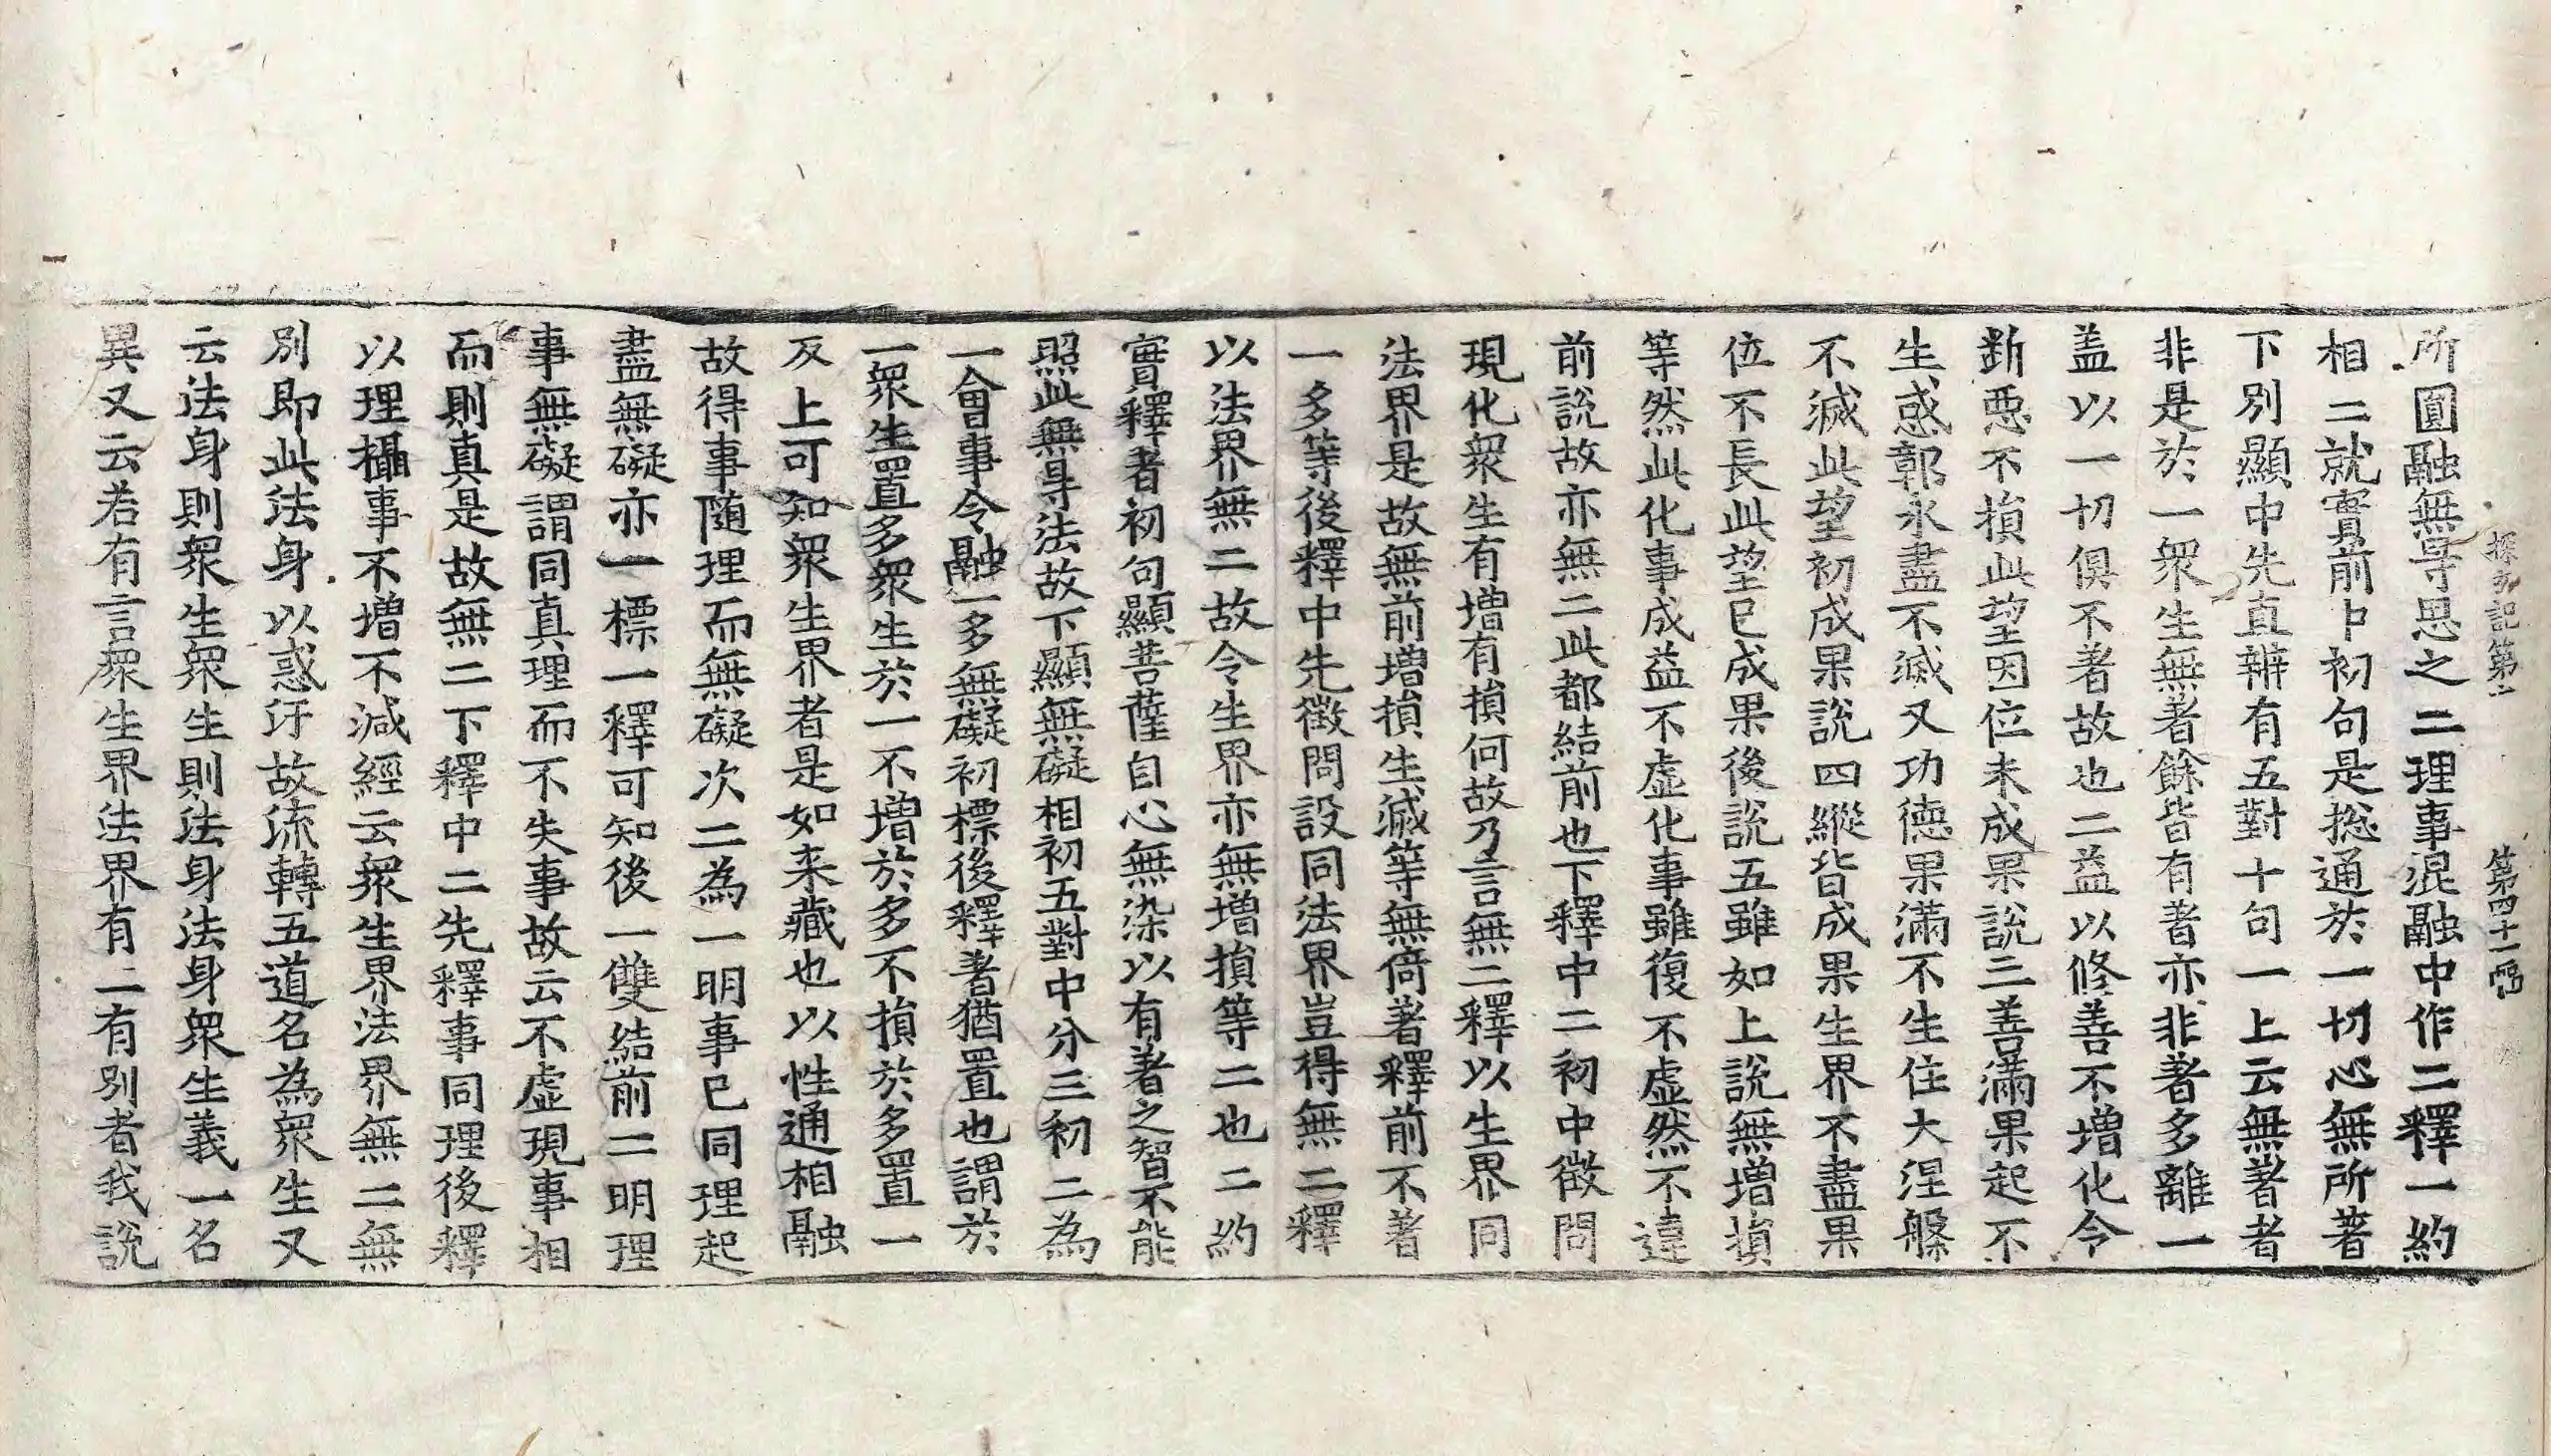 探玄記第十 第四十一張
所圓融無㝵思之二理事混融中作二釋一約
相二就實前中初句是揔通於一切心無所著
下別顯中先直辨有五對十句一上云無著者
非是於一衆生無著餘皆有著亦非著多離一
盖以一切俱不著故也二益以修善不增化令
断惡不損此望因位未成果說三善滿果起不
生惑鄣永盡不滅又功德果滿不生住大涅槃
不滅此望初成果說四縱皆成果生界不盡果
位不長此望已成果後說五雖如上說無增損
等然此化事成益不虛化事雖復不虛然不違
前說故亦無二此都結前也下釋中二初中徵問
現化衆生有增有損何故乃言無二釋以生界同
法界是故無前增損生滅等無倚著釋前不著
一多等後釋中先徵問設同法界豈得無二釋
以法界無二故令生界亦無增損等二也二約
實釋者初句顯菩薩自心無染以有著之智不能
照此無㝵法故下顯無礙相初五對中分三初二為
一會事令融一多無礙初標後釋著猶置也謂於
一衆生置多衆生於一不增於多不損於多置一
反上可知衆生界者是如来藏也以性通相融
故得事随理而無礙次二為一明事已同理起
盡無礙亦一標一釋可知後一雙結前二明理
事無礙謂同真理而不失事故云不虛現事相
而則真是故無二下釋中二先釋事同理後釋
以理攝事不增不減經云衆生界法界無二無
別即此法身以惑汙故流轉五道名為衆生又
云法身則衆生衆生則法身法身衆生義一名
異又云若有言衆生界法界有二有別者我說